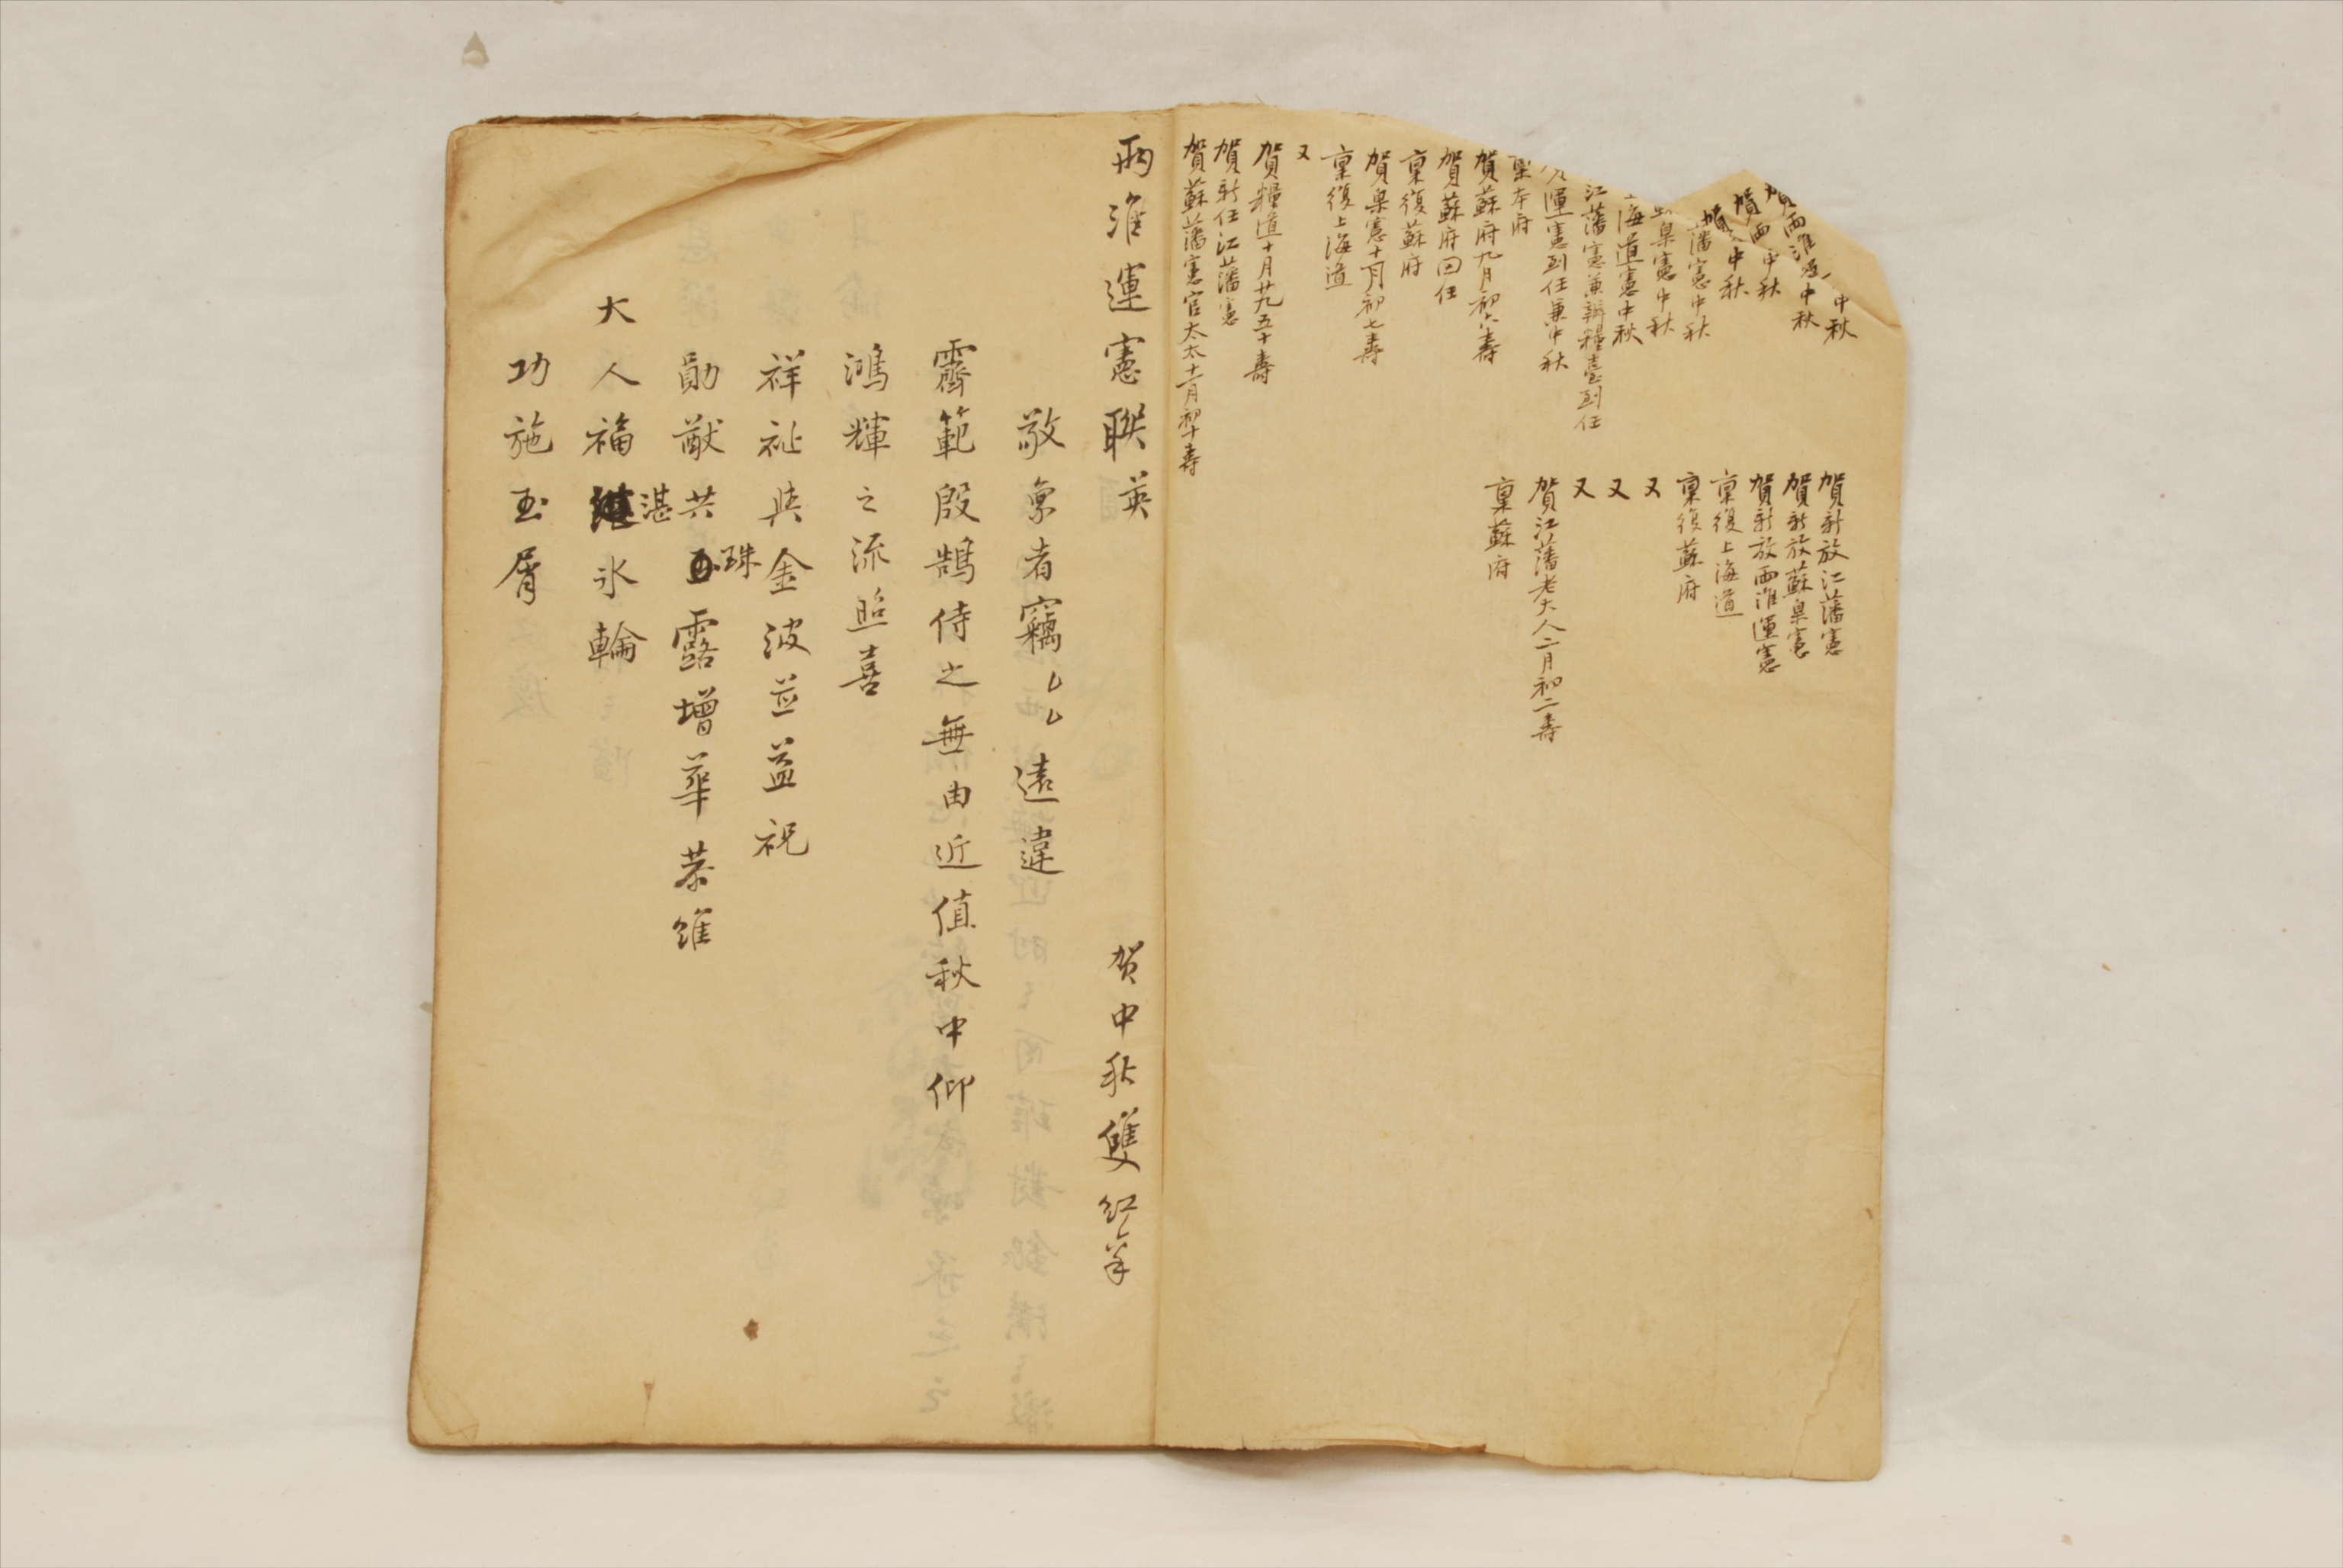 中秋
賀兩淮運中秋
賀兩中秋
賀中秋
藩憲中秋
臬憲中秋
海道憲中秋
江藩憲兼辦糧臺到任
運憲到任兼中秋
稟本府
賀蘇府九月初六壽
賀蘇府回任
稟復蘇府
賀臬憲十一月初七壽
稟復上海道
又
賀糧道十月廿九五十壽
賀新任江藩憲
賀蘇藩憲官太太十二月初十壽
賀新放江藩憲
賀新放蘇臬憲
賀新放兩淮運憲
稟復上海道
稟復蘇府
又
又
又
賀江藩老大人二月初二壽
稟蘇府
兩淮運憲聯英 賀中秋雙紅稟
敬稟者竊〻〻遠違
霽範殷鵠侍之無由近值秋中仰
鴻輝之流照喜
祥祉與金波並益祝
勛猷共珠露增華恭維
大人福湛氷輪
功施玉屑